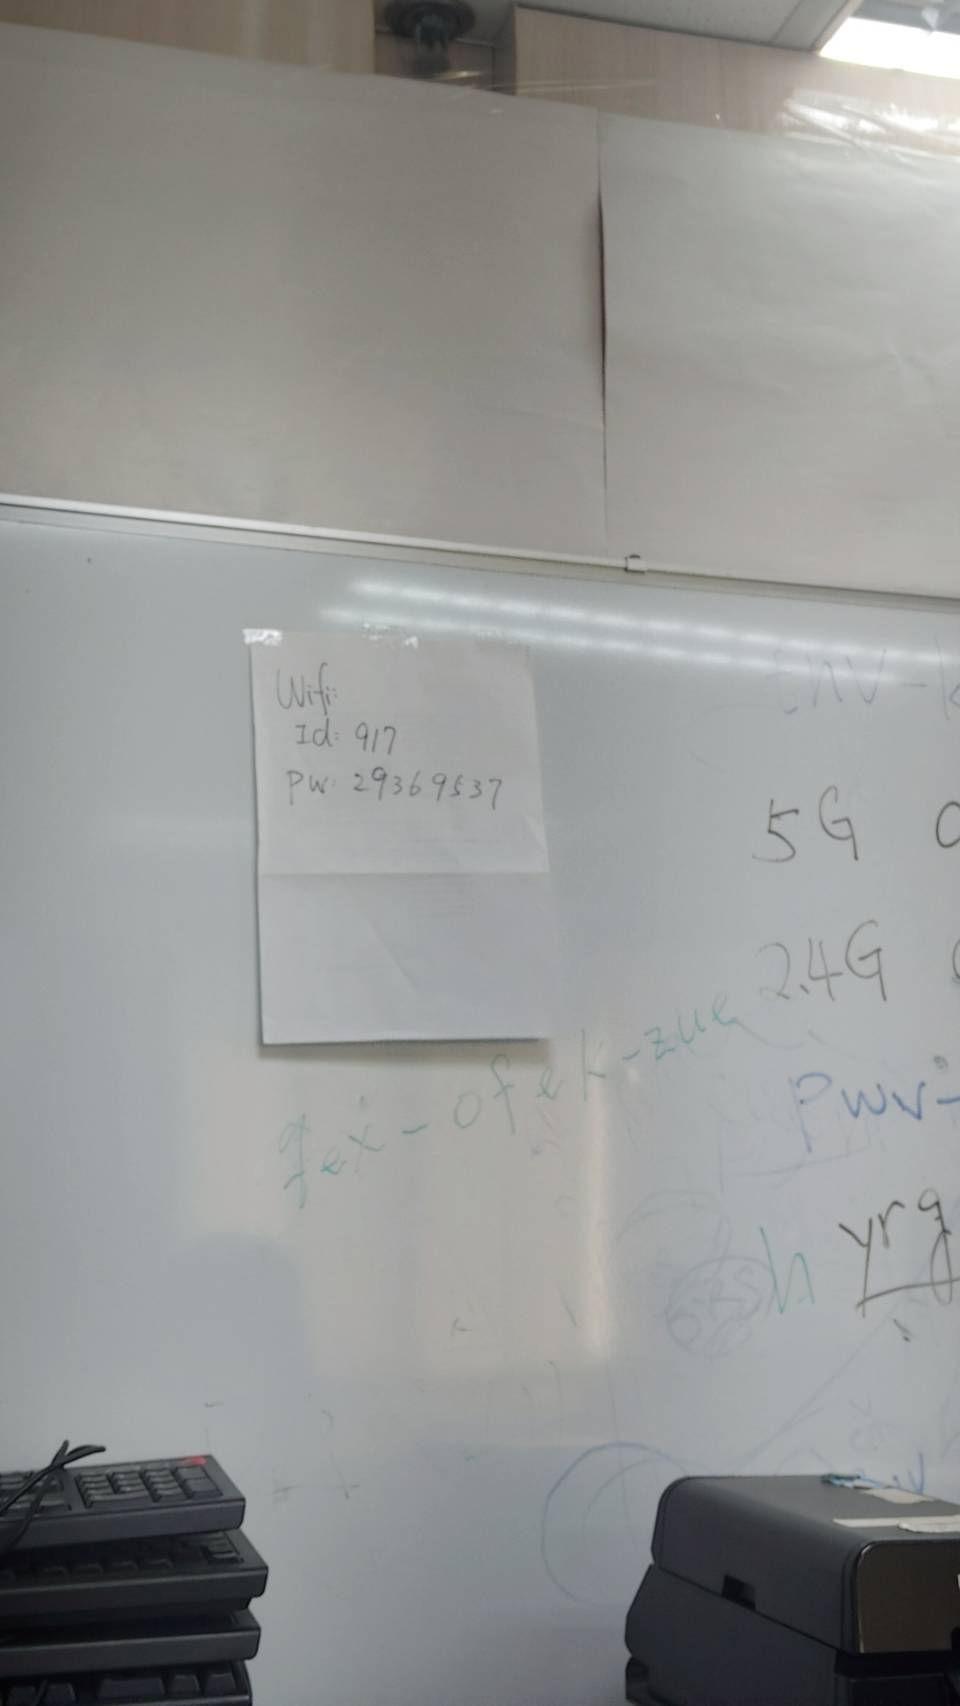 Wifi:
Id: 917
PW: 29369537
5G
2.4G
qex-ofek-zue
pwv-
h yrg